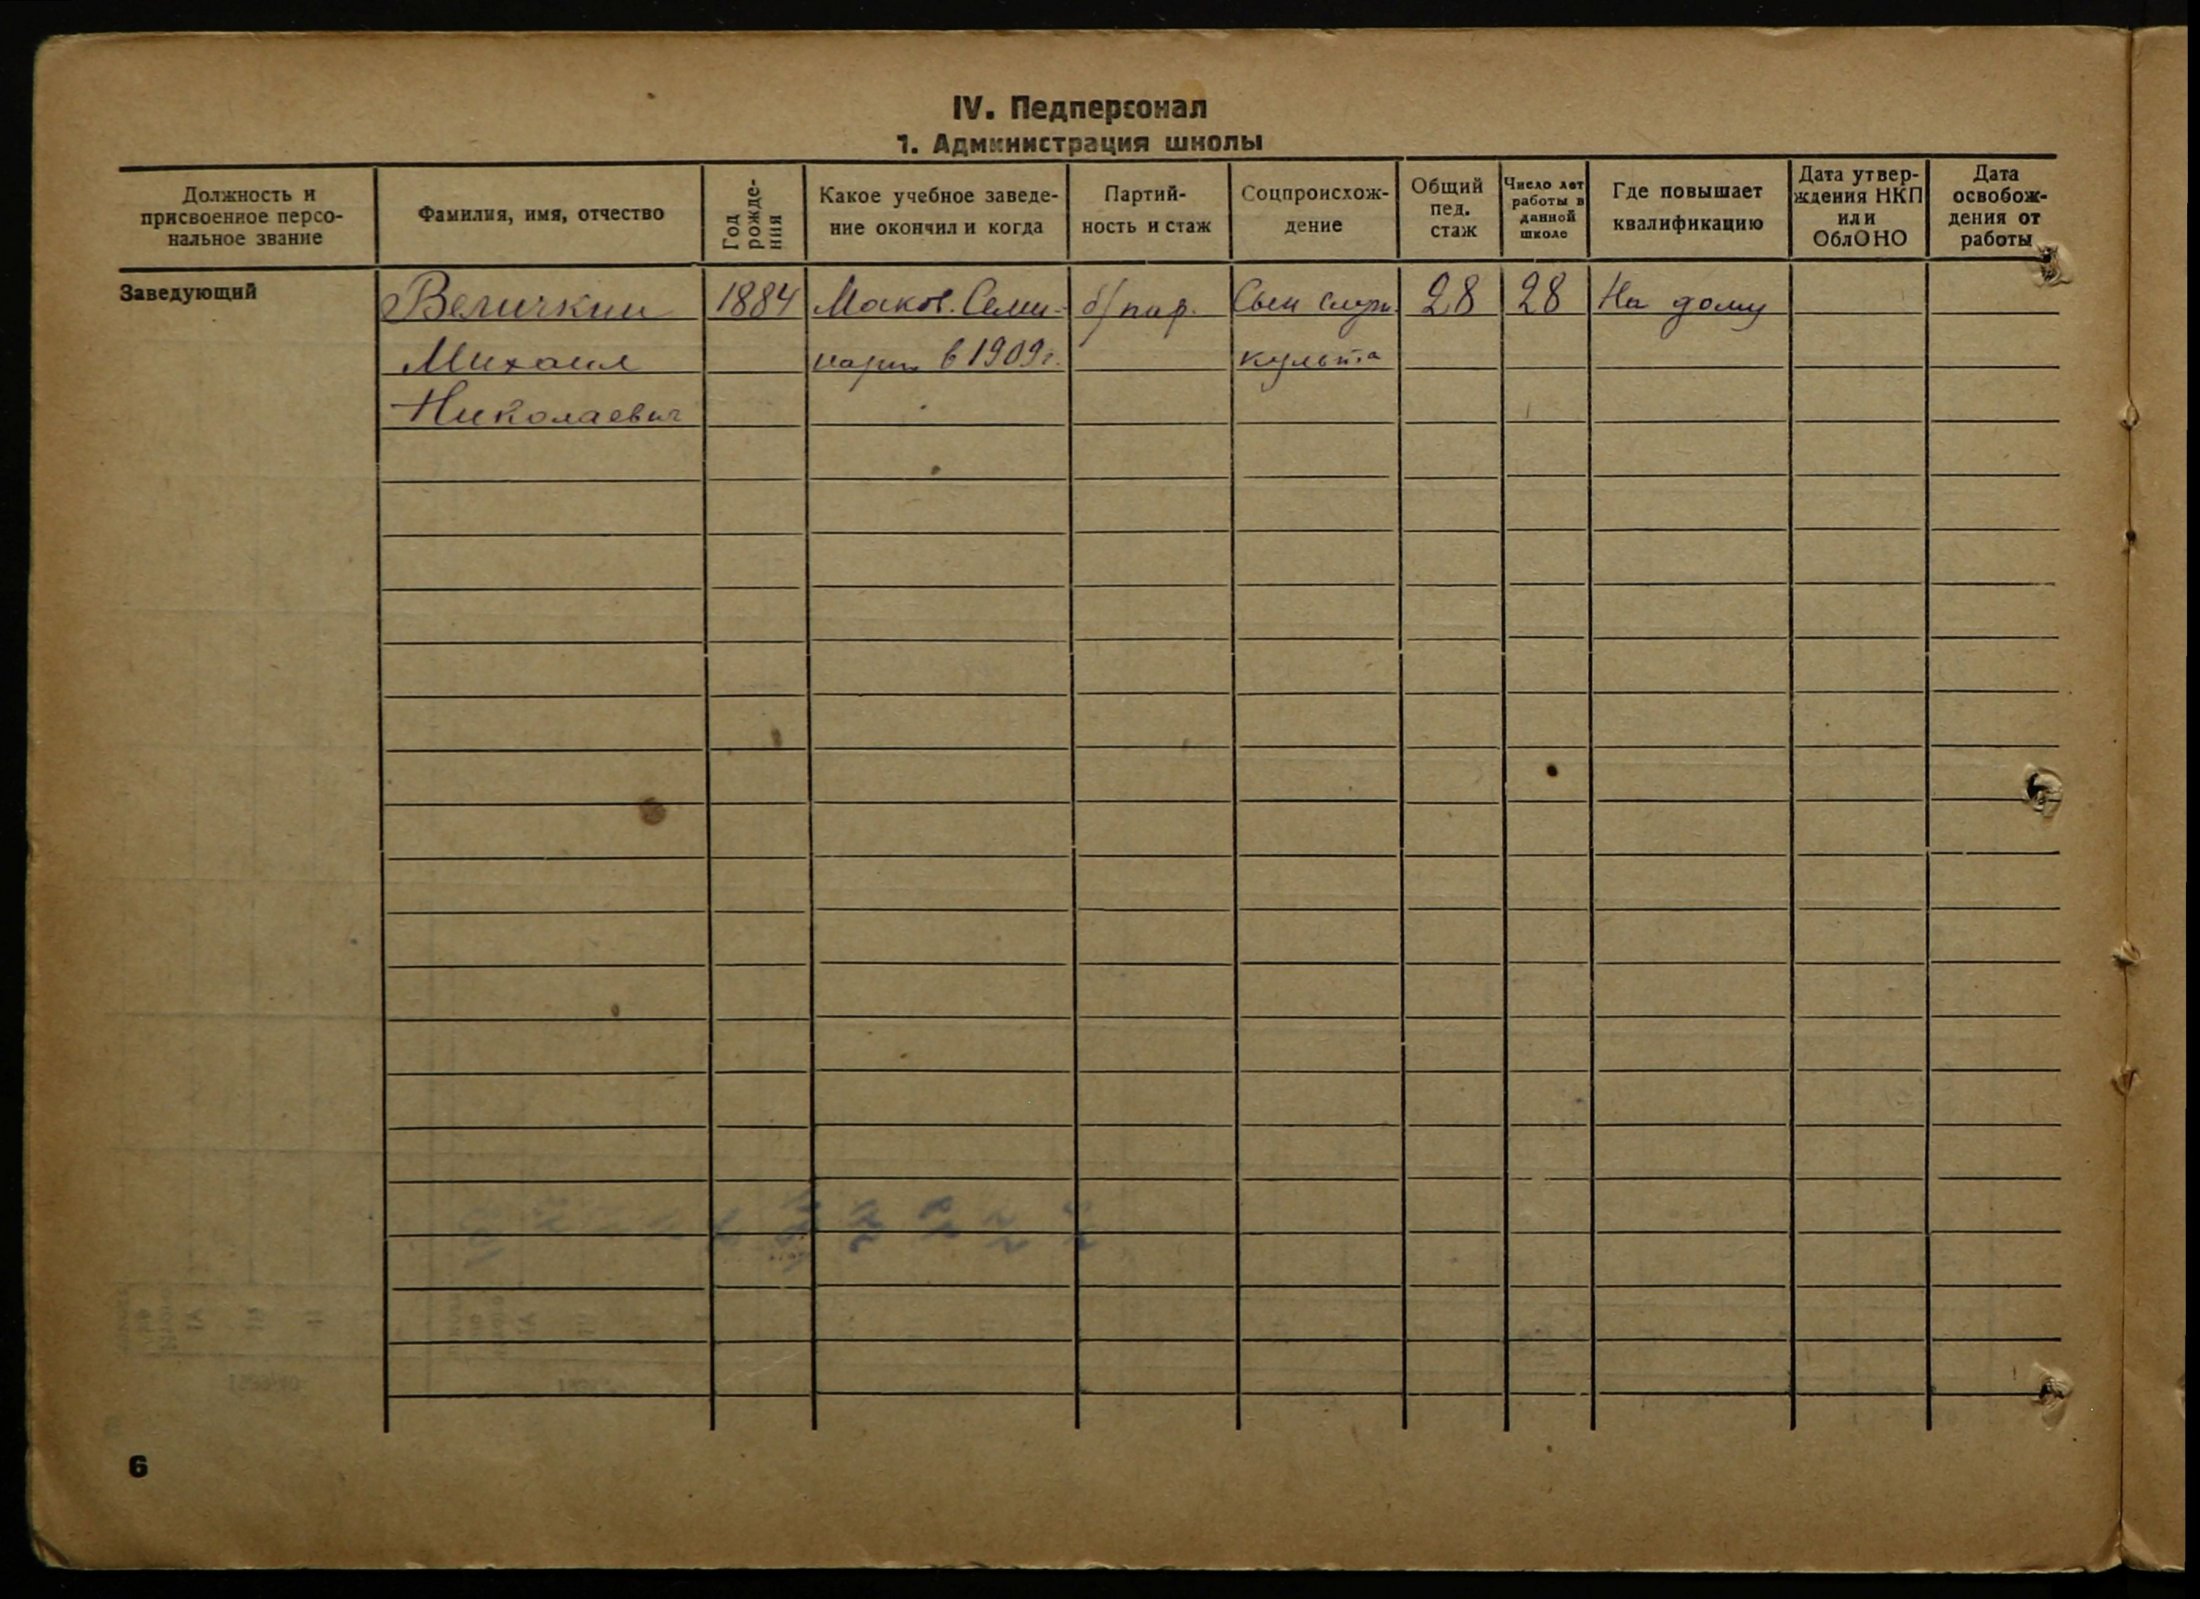 IV. Педперсонал
1. Администрация школы
Должность и
присвоенное персо-
нальное звание
Фамилия, имя, отчество
Год
рожде-
ния
Какое учебное заведе-
ние окончил и когда
Партий-
ность и стаж
Соцпроисхож-
дение
Общий
пед.
стаж
Число лет
работы в
данной
школе
Где повышает
квалификацию
Дата утвер-
ждения НКП
или
ОблОНО
Дата
освобож-
дения от
работы
Заведующий
Величкин 1884 Моков. Семи- б/пар. Сын служ. 28 28 На дому
Михаил нария в 1909г. культа
Николаевич
6